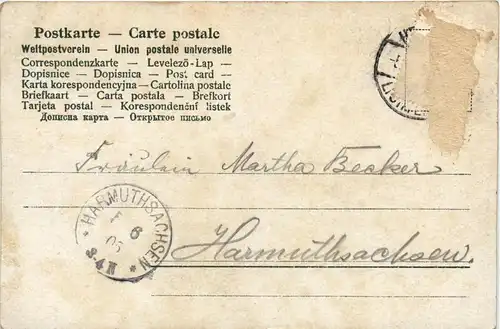 Postkarte — Carte postale
Weltpostverein — Union postale universelle
Correspondenzkarte — Levelező-Lap —
Dopisnice — Dopisnica — Post card —
Karta korespondencyjna — Cartolina postale
Briefkaart — Carta postala — Brefkort
Tarjeta postal — Korespondenéni listek
Дописна карта — Открытое письмо
Fräulein Martha Becker
HARMUTHSACHSEN
6
05
3-4 N
Harmuthsachsen.